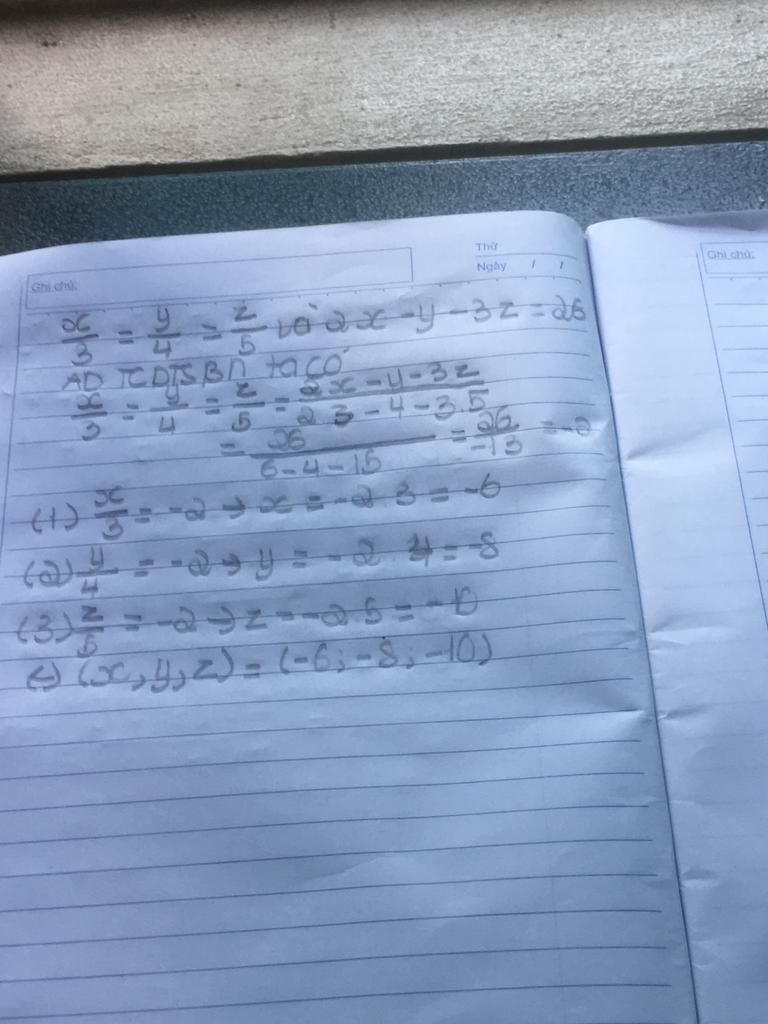 Thứ
Ngày / /
Ghi chú:
Ghi chú:
x/3 = y/4 = z/5 và 2x - y - 3z = 26
AD TCDTSBN ta có
x/3 = y/4 = z/5 = (2x - y - 3z)/(2 3 - 4 - 3.5)
= 26/(6 - 4 - 15) = 26/-13 = -2
(1) x/3 = -2 → x = -2 3 = -6
(2) y/4 = -2 → y = -2 4 = -8
(3) z/5 = -2 → z = -2.5 = -10
(x, y, z) = (-6; -8; -10)